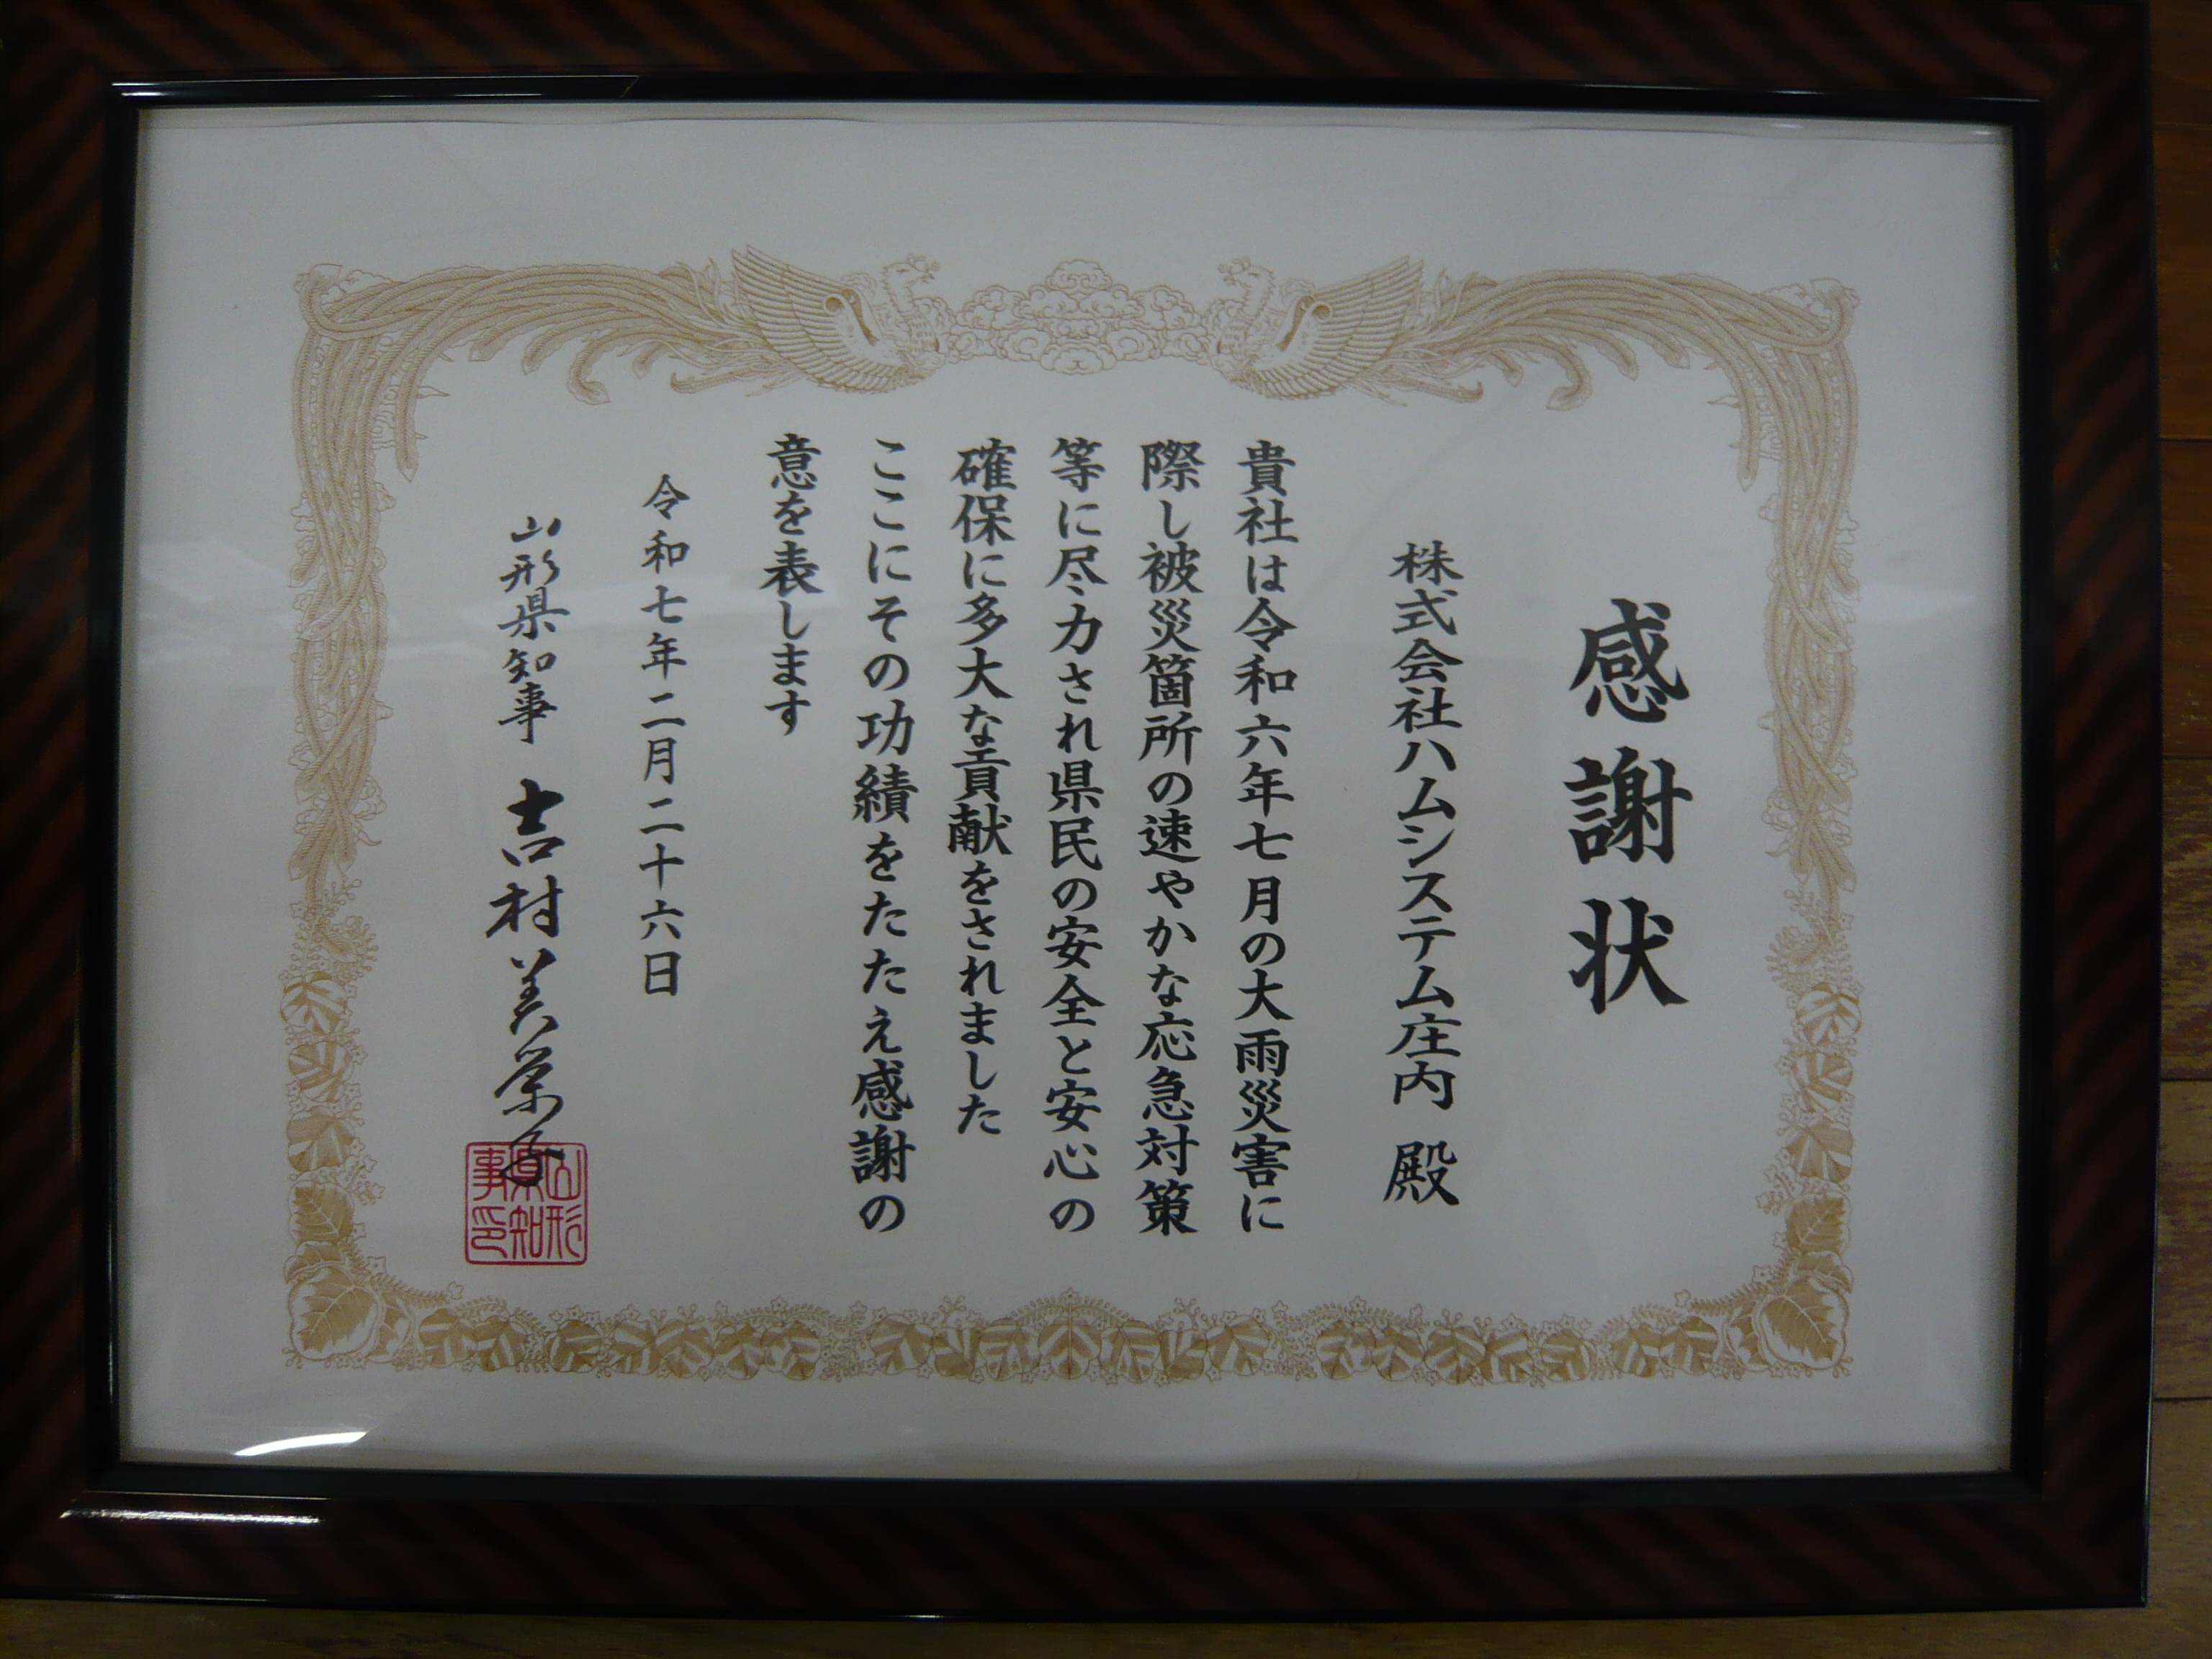 感謝状
株式会社ハムシステム庄内 殿
貴社は令和六年七月の大雨災害に
際し被災箇所の速やかな応急対策
等に尽力され県民の安全と安心の
確保に多大な貢献をされました
ここにその功績をたたえ感謝の
意を表します
令和七年二月二十六日
山形県知事 吉村美栄子
山形縣知事印